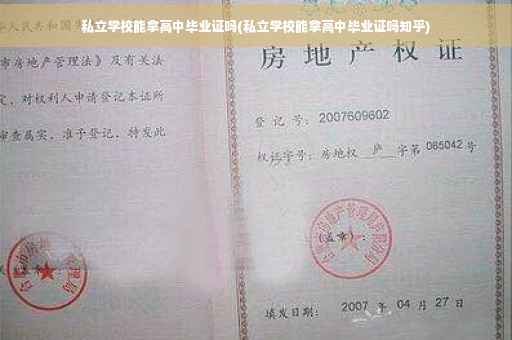 私立学校能拿高中毕业证吗(私立学校能拿高中毕业证吗知乎)
华人民共和国
市房地产管理法》及有关法
定，对权利人申请登记本证所
审查属实，准予登记，特发此
房地产权证
登记号：2007609602
权证字号：房地权 庐 字第 065042 号
(盖章)：
填发日期： 2007 年 04 月 27 日